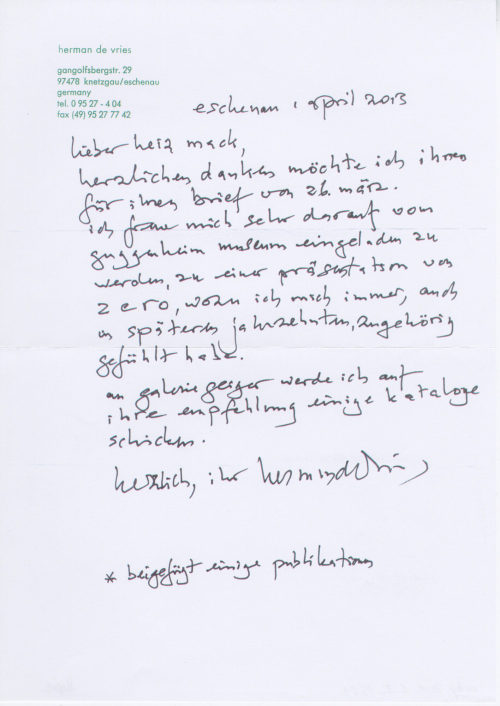 herman de vries
gangolfsbergstr. 29
97478 knetzgau/eschenau
germany
tel. 0 95 27 - 4 04
fax (49) 95 27 77 42
eschenau 1 april 2013
lieber heiz mack,
herzlichen danken möchte ich ihnen
für ihren brief von 26. märz.
ich freue mich sehr darauf vom
guggenheim museum eingeladen zu
werden, zu einer präsentation von
zero, wozu ich mich immer, auch
in späteren jahrzehnten, zugehörig
gefühlt habe.
an galerie geiger werde ich auf
ihre empfehlung einige kataloge
schicken.
herzlich, ihr herman de vries
* beigefügt einige publikationen